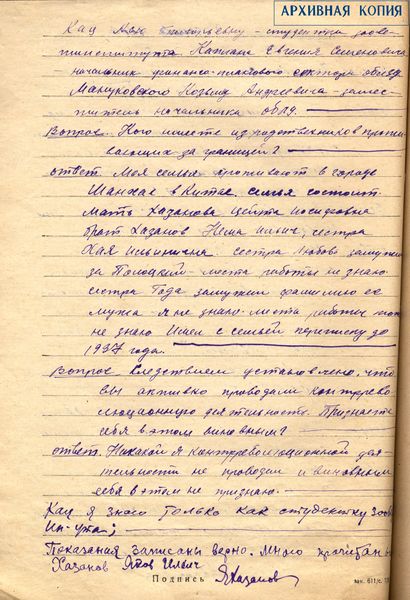 АРХИВНАЯ КОПИЯ
Кац студентка зоове-
Каплана Евгения Семеновича
начальник финансо-планового сектора
Мануковского Андреевича - замес-
титель начальника
Вопрос. Кого имеете из родственников прожи-
вающих за границей?
ответ. Моя семья проживают в городе
Шанхае в Китае. семья состоит.
Мать Хазанова Иосифовна
брат Хазанов Нема Ильич, сестра
Хая Ильинична. сестра Любовь замужем
за места работы не знаю
сестра замужем фамилию ее
мужа я не знаю места работы
не знаю Имел с семьей переписку до
1937 года.
Вопрос Следствием установлено, что
вы активно проводили контрево-
люционную деятельность. Признаете
себя в этом виновным?
ответ. Никакой я контреволюционной дея-
тельности не проводил и виновным
себя в этом не признаю.
Кац я знаю только как студентку зоове
Ин-ута;
Показания записаны верно. Мною прочитан
Хазанов Яков Ильич
Подпись ЯХазанов
зак. 611/с.